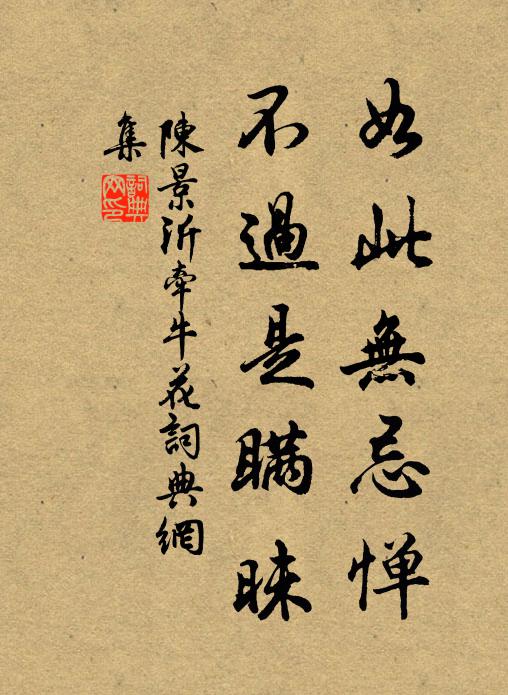 如此無忌惮
不過是瞞睐
陳景沂牽牛花詞典網
集
詞典
网印